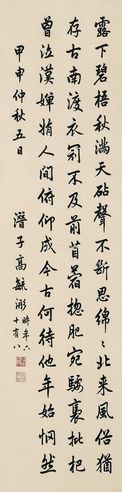 露下碧梧秋滿天砧聲不斷思綿〻北來風俗猶
存古南渡衣冠不及前苜蓿揔肥宛騕褭枇杷
曾泣漢嬋娟人間俯仰成今古何待他年始惘然
甲申仲秋五日
潛子高毓浵時年六
十有八